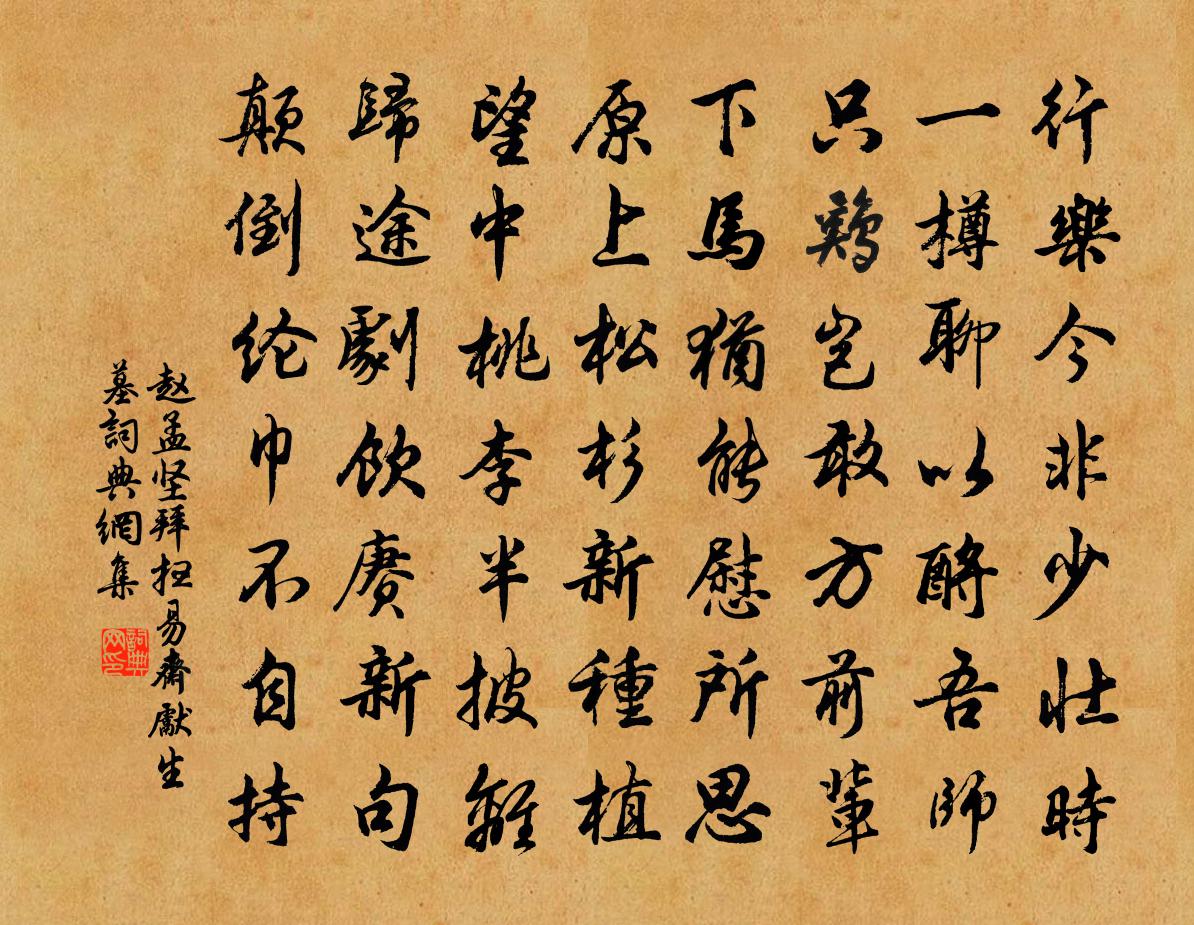 行樂今非少壯時
一樽聊以酧吾師
只鷄豈敢方前輩
下馬猶能慰所思
原上松杉新種植
望中桃李半披離
歸途劇飲賡新句
顛倒纶巾不自持
赵孟坚拜扫易齋獻生
墓詞典網集
詞典网印